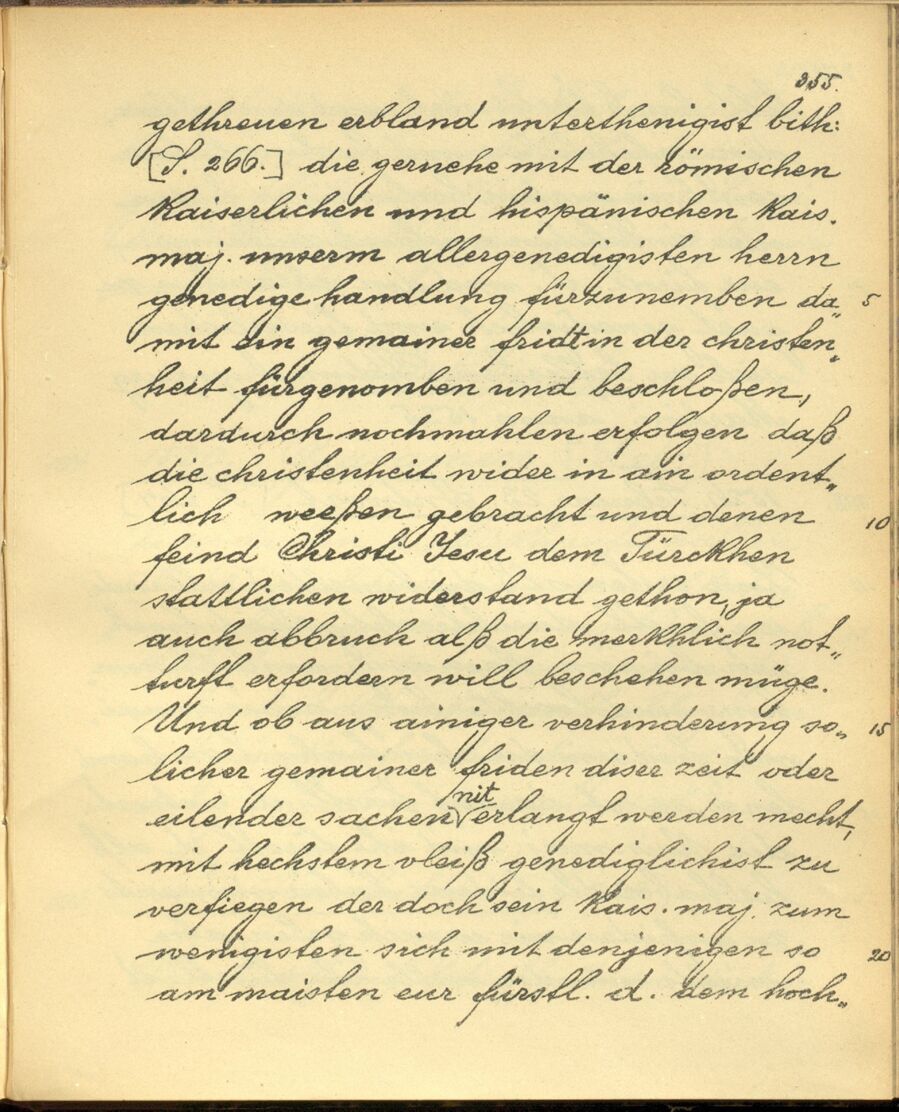 355.
gethreuen erbland unterthenigist bith:
[S. 266.] die geruehe mit der römischen
kaiserlichen und hispänischen kais.
maj. unserm allergenedigisten herrn
genedige handlung fürzunemben da„ 5
mit ein gemainer fridt in der christen„
heit fürgenomben und beschloßen,
dardurch nochmahlen erfolgen daß
die christenheit wider in ain ordent„
lich weeßen gebracht und denen 10
feind Christi Jesu dem Türckhen
stattlichen widerstand gethon, ja
auch abbruch alß die merkhlich not„
turft erfordern will beschehen müge.
Und ob aus ainiger verhinderung so„ 15
licher gemainer friden diser zeit oder
eilender sachen nit erlangt werden mecht,
mit hechstem vleiß genediglichist zu
verfiegen der doch sein kais. maj. zum
wenigisten sich mit denjenigen so 20
am maisten eur fürstl. d. dem hoch„